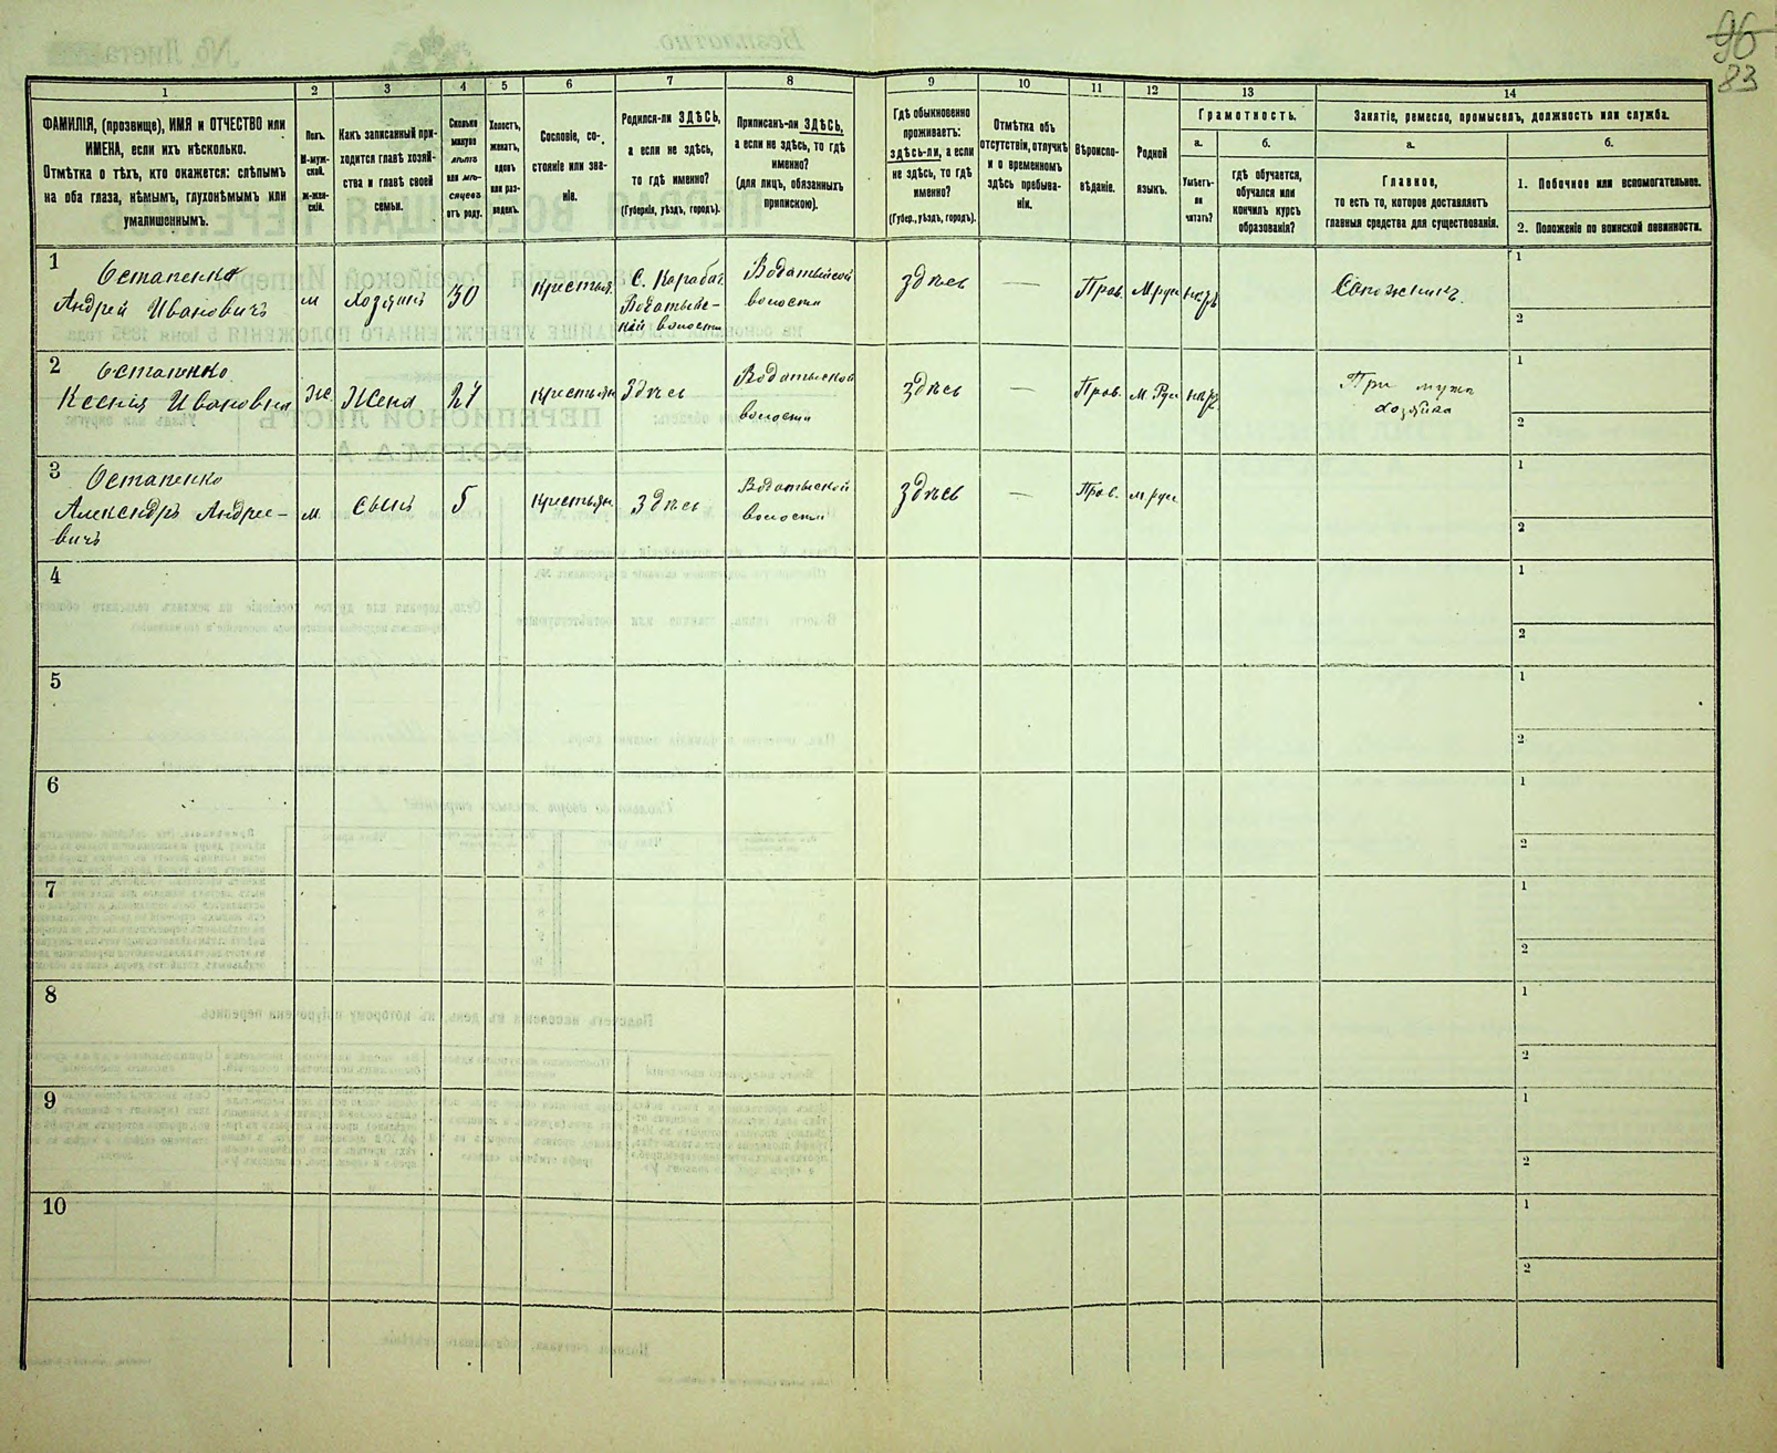 96
83
1
2
3
4
5
6
7
8
9
10
11
12
13
14
ФАМИЛІЯ, (прозвище), ИМЯ и ОТЧЕСТВО или
ИМЕНА, если ихъ нѣсколько.
Отмѣтка о тѣхъ, кто окажется: слѣпымъ
на оба глаза, нѣмымъ, глухонѣмымъ или
умалишеннымъ.
Полъ.
М-муж-
ской.
Ж-жен-
скій.
Какъ записанный при-
ходится главѣ хозяй-
ства и главѣ своей
семьи.
Сколько
минуло
лѣтъ
или мѣ-
сяцевъ
отъ роду.
Холостъ,
женатъ,
вдовъ
или раз-
веденъ.
Сословіе, со-
стояніе или зва-
ніе.
Родился-ли ЗДѢСЬ,
а если не здѣсь,
то гдѣ именно?
(Губернія, уѣздъ, городъ).
Приписанъ-ли ЗДѢСЬ,
а если не здѣсь, то гдѣ
именно?
(для лицъ, обязанныхъ
припискою).
Гдѣ обыкновенно
проживаетъ:
здѣсь-ли, а если
не здѣсь, то гдѣ
именно?
(Губер., уѣздъ, городъ).
Отмѣтка объ
отсутствіи, отлучкѣ
и о временномъ
здѣсь пребыва-
ніи.
Вѣроиспо-
вѣданіе.
Родной
языкъ.
Грамотность.
а.
Умѣетъ-
ли
читать?
б.
гдѣ обучается,
обучался или
кончилъ курсъ
образованія?
Занятіе, ремесло, промыселъ, должность или служба.
а.
Главное,
то есть то, которое доставляетъ
главныя средства для существованія.
б.
1. Побочное или вспомогательное.
2. Положеніе по воинской повинности.
1
Остапенко
Андрей Ивановичъ
м
хозяинъ
30
Крестьян.
С. Карабач.
волости
волости
здѣсь
—
Прав.
М рус
1
2
Сапожникъ
2
Остапенко
Ксенія Ивановна
Же
Жена
27
Крестьян
Здѣсь
волости
здѣсь
—
Прав.
М. Рус
При мужѣ
хозяйка
1
2
3
Остапенко
Александръ Андрее-
вичъ
м.
Сынъ
5
Крестьян
Здѣсь
волости
здѣсь
—
Прав.
м. рус
1
2
4
1
2
5
1
2
6
1
2
7
1
2
8
1
2
9
1
2
10
1
2